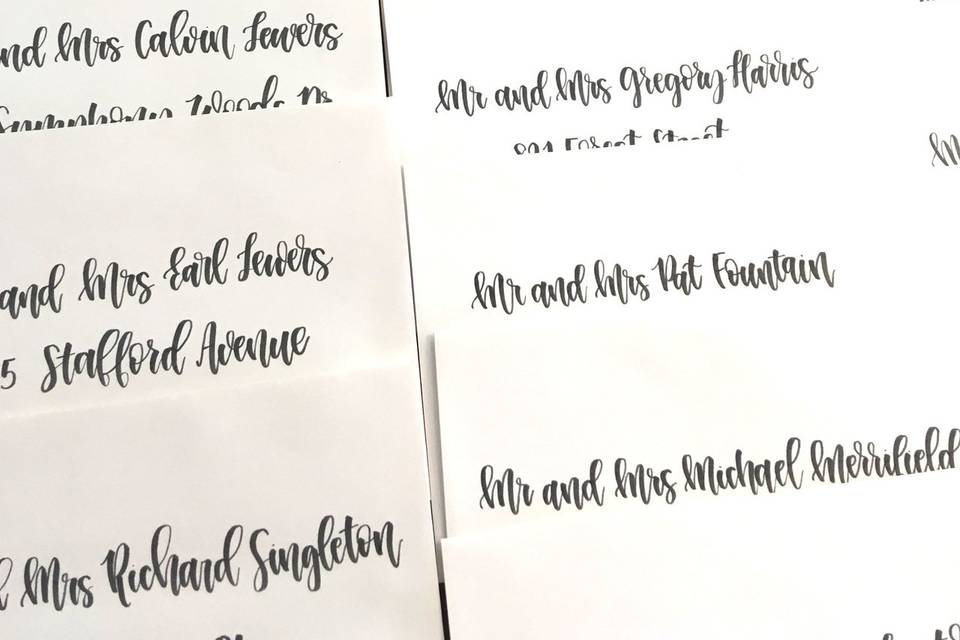 and Mrs Calvin Fewers
Symphony Woods Dr
and Mrs Earl Fewers
5 Stafford Avenue
Mrs Richard Singleton
Mr and Mrs Gregory Harris
Forest Street
Mr and Mrs Pat Fountain
Mr and Mrs Michael Merrifield